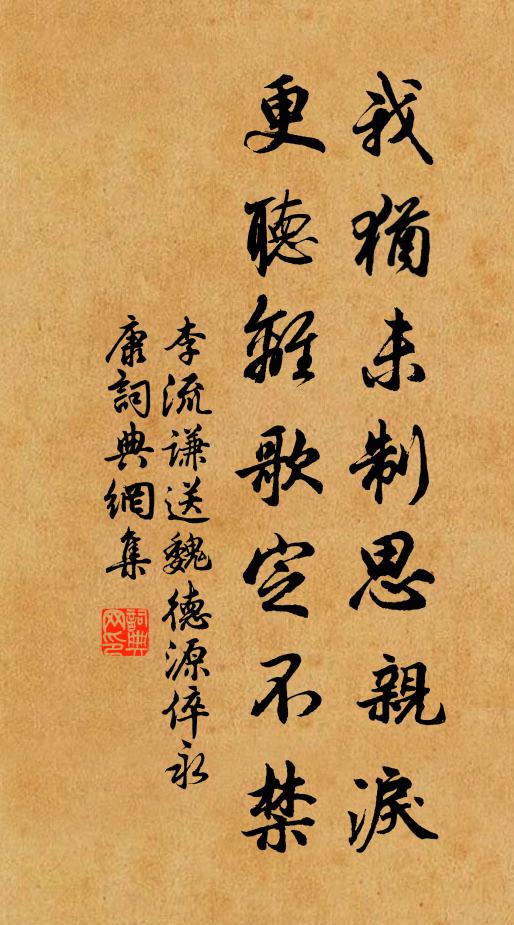 我猶未制思親淚
更聽離歌定不禁
李流謙送魏德源倅永
康詞典網集
詞典
网印